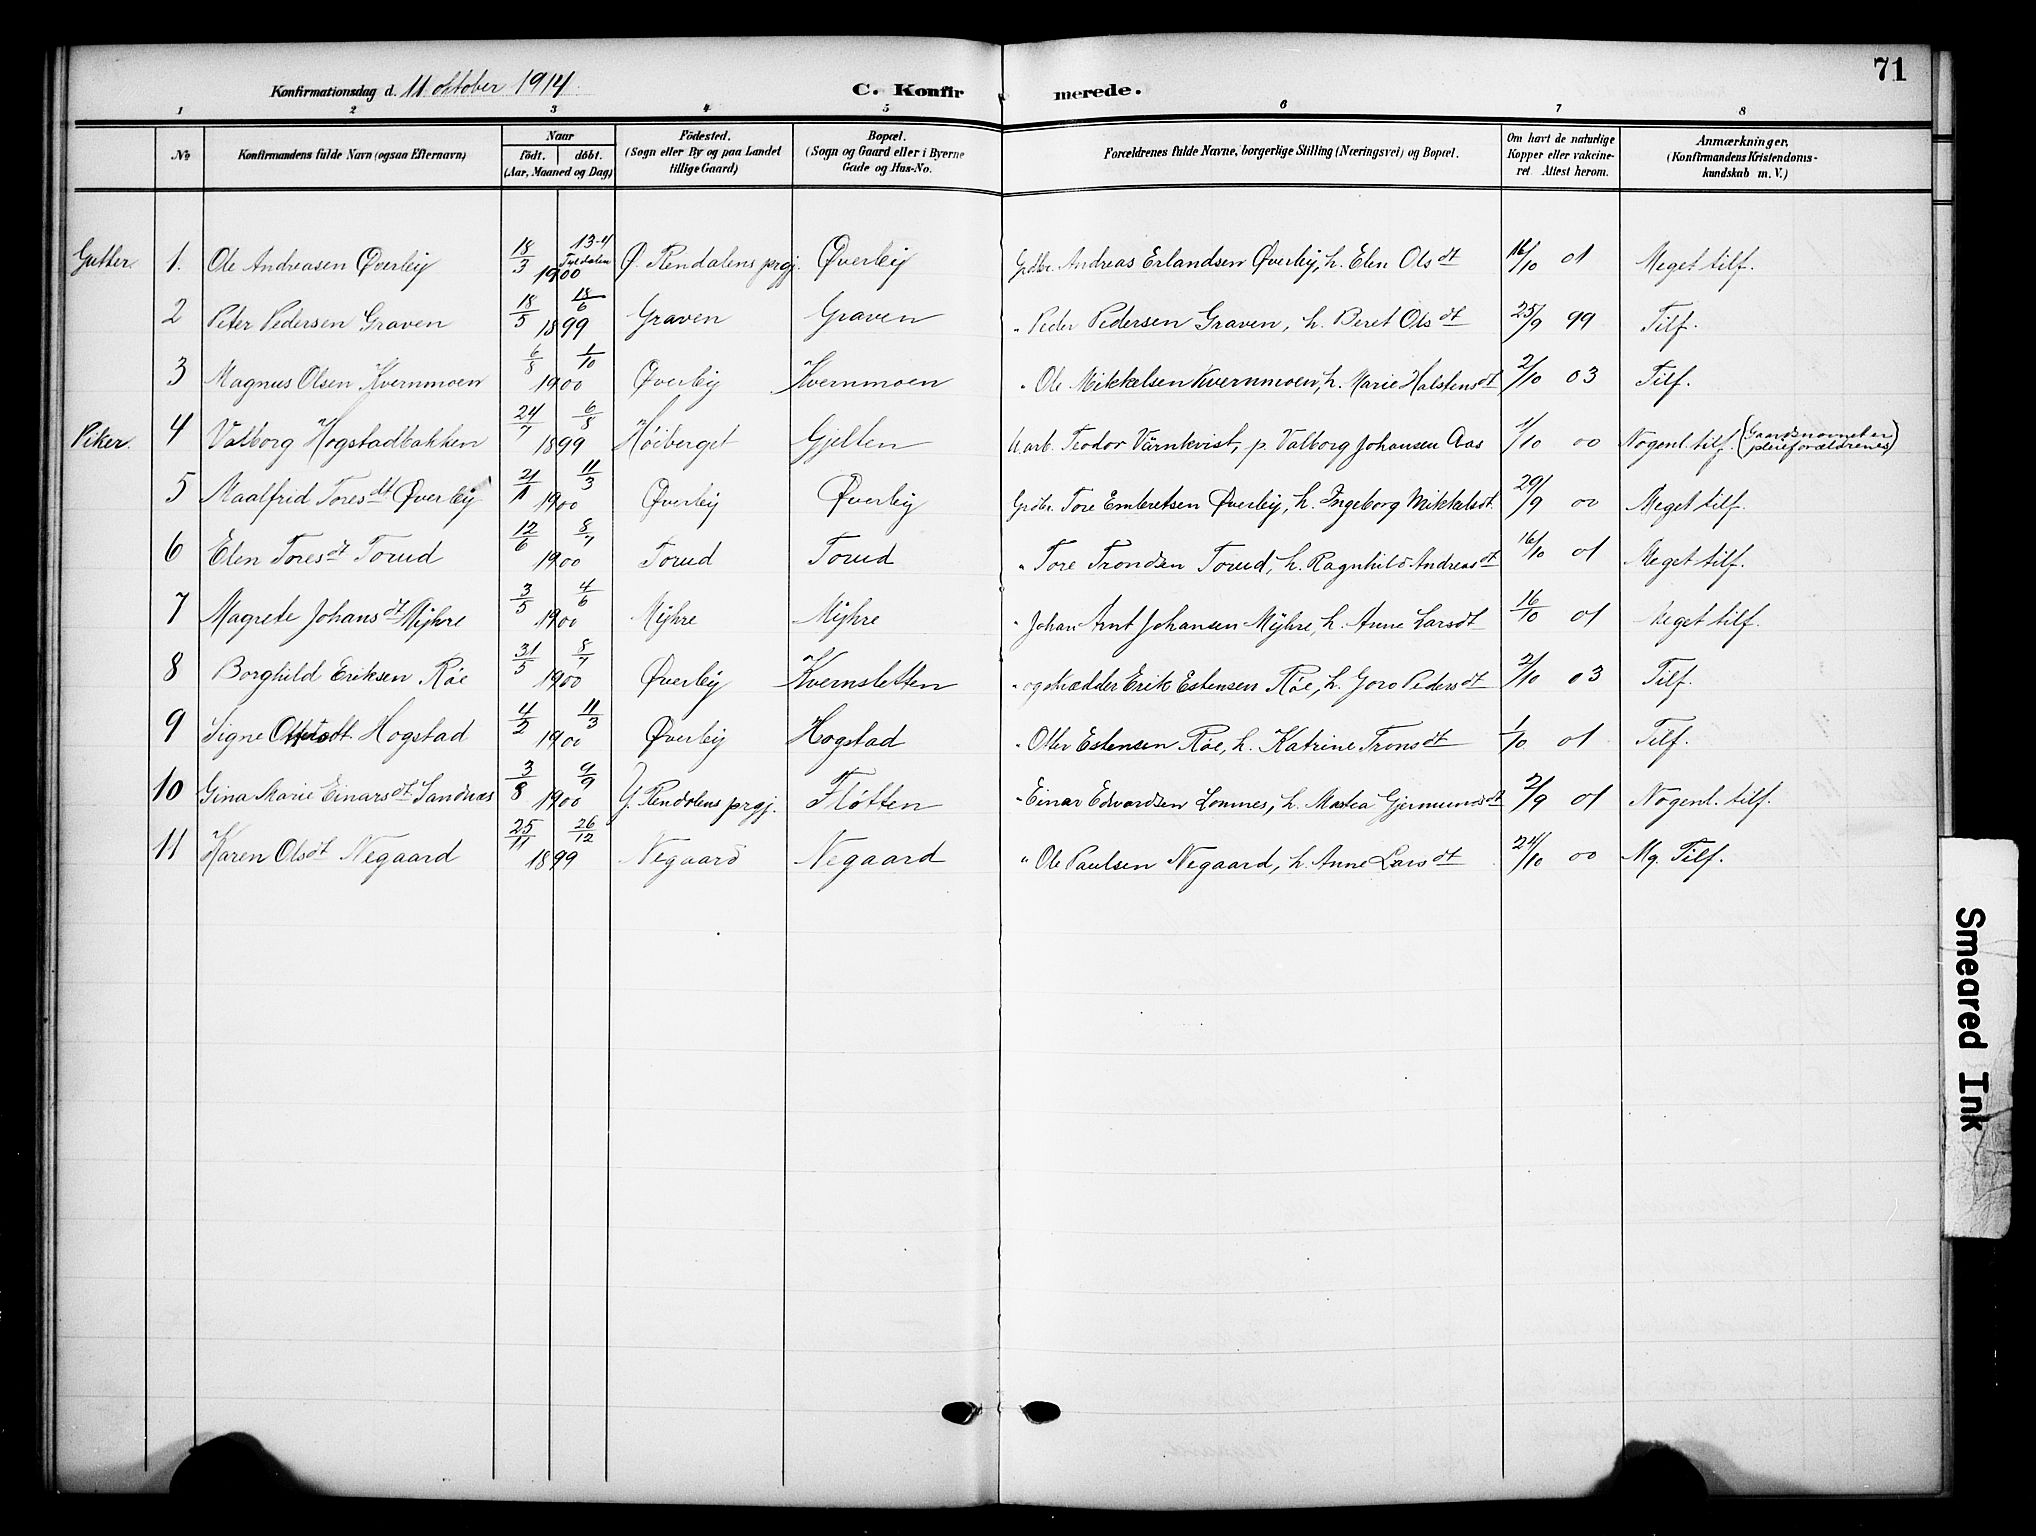 71
Konfirmationsdag d. 11. oktober 1914.
C. Konfirmerede.
1 2 3 4 5 6 7 8
No
Konfirmandens fulde Navn (ogsaa Efternavn)
Naar
födt. döbt.
(Aar, Maaned og Dag)
Födested.
(Sogn eller By og paa Landet
tillige Gaard)
Bopæl.
(Sogn og Gaard eller i Byerne
Gade og Hus-No.
Forældrenes fulde Navne, borgerlige Stilling (Næringsvei) og Bopæl.
Om havt de naturlige
Kopper eller vakcine-
ret Attest herom.
Anmærkninger.
(Konfirmandens Kristendoms-
kundskab m. V.)
Gutter. 1. Ole Andreasen Øverby 18/3 13-4 Tyldalen 1900 Ø. Rendalens prgj. Øverby Grdbr. Andreas Erlandsen Øverby, h. Elen Olsdt 16/10 01 Meget tilf.
2 Peter Pedersen Graven 18/5 18/6 1899 Graven Graven " Peder Pedersen Graven, h. Beret Olsdt 25/9 99 Tilf.
3 Magnus Olsen Kvernmoen 6/8 1/10 1900 Øverby Kvernmoen " Ole Mikkelsen Kvernmoen, h. Marie Halstensdt 2/10 03 Tilf.
Piker. 4 Valborg Hogstadbakken 24/7 6/8 1899 Høiberget Gjelten arb. Teodor Värnkvist, p. Valborg Johansen Aas 1/10 00 Nogenl. tilf. (Gaardsnavnet er
pleieforældrenes)
5 Maalfrid Toresdt Øverby 21/1 11/3 1900 Øverby Øverby Grdbr. Tore Embretsen Øverby, h. Ingeborg Mikkelsdt. 29/9 00 Meget tilf.
6 Elen Toresdt Torud 12/6 8/7 1900 Torud Torud " Tore Trondsen Torud, h. Ragnhild Andreasdt 16/10 01 Meget tilf.
7 Magrete Johansdt Myhre 3/5 4/6 1900 Myhre Myhre " Johan Arnt Johansen Myhre, h. Anne Larsdt 16/10 01 Meget tilf.
8 Borghild Eriksen Røe 31/5 8/7 1900 Øverby Kvernsletten " og skrædder Erik Estensen Røe, h. Goro Pedersdt 2/10 03 Tilf.
9 Signe Hogstad 4/2 11/3 1900 Øverby Hogstad " Otter Estensen Røe, h. Katrine Tronsdt 1/10 01 Tilf.
10 Gina Marie Einarsdt Sandnæs 3/8 9/9 1900 Y. Rendalens prgj. Fløtten " Einar Edvardsen Lomnes, h. Gjermundsdt 2/9 01 Nogenl. tilf.
11 Karen Olsdt Negaard 25/11 26/12 1899 Negaard Negaard " Ole Paulsen Negaard, h. Anne Larsdt 24/10 00 Mg. Tilf.
Smeared Ink